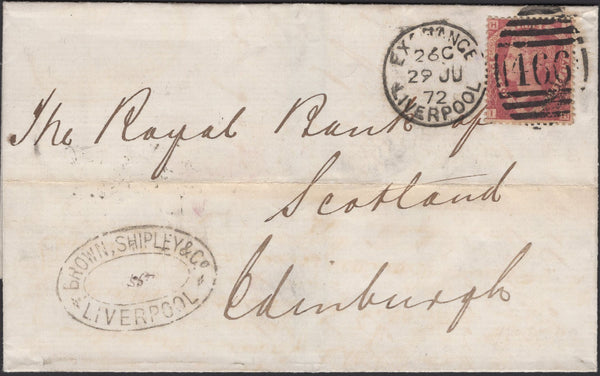 EXCHANGE
26C
29 JU
72
LIVERPOOL
466
The Royal Bank of
Scotland
Edinburgh
BROWN, SHIPLEY & Co
LIVERPOOL